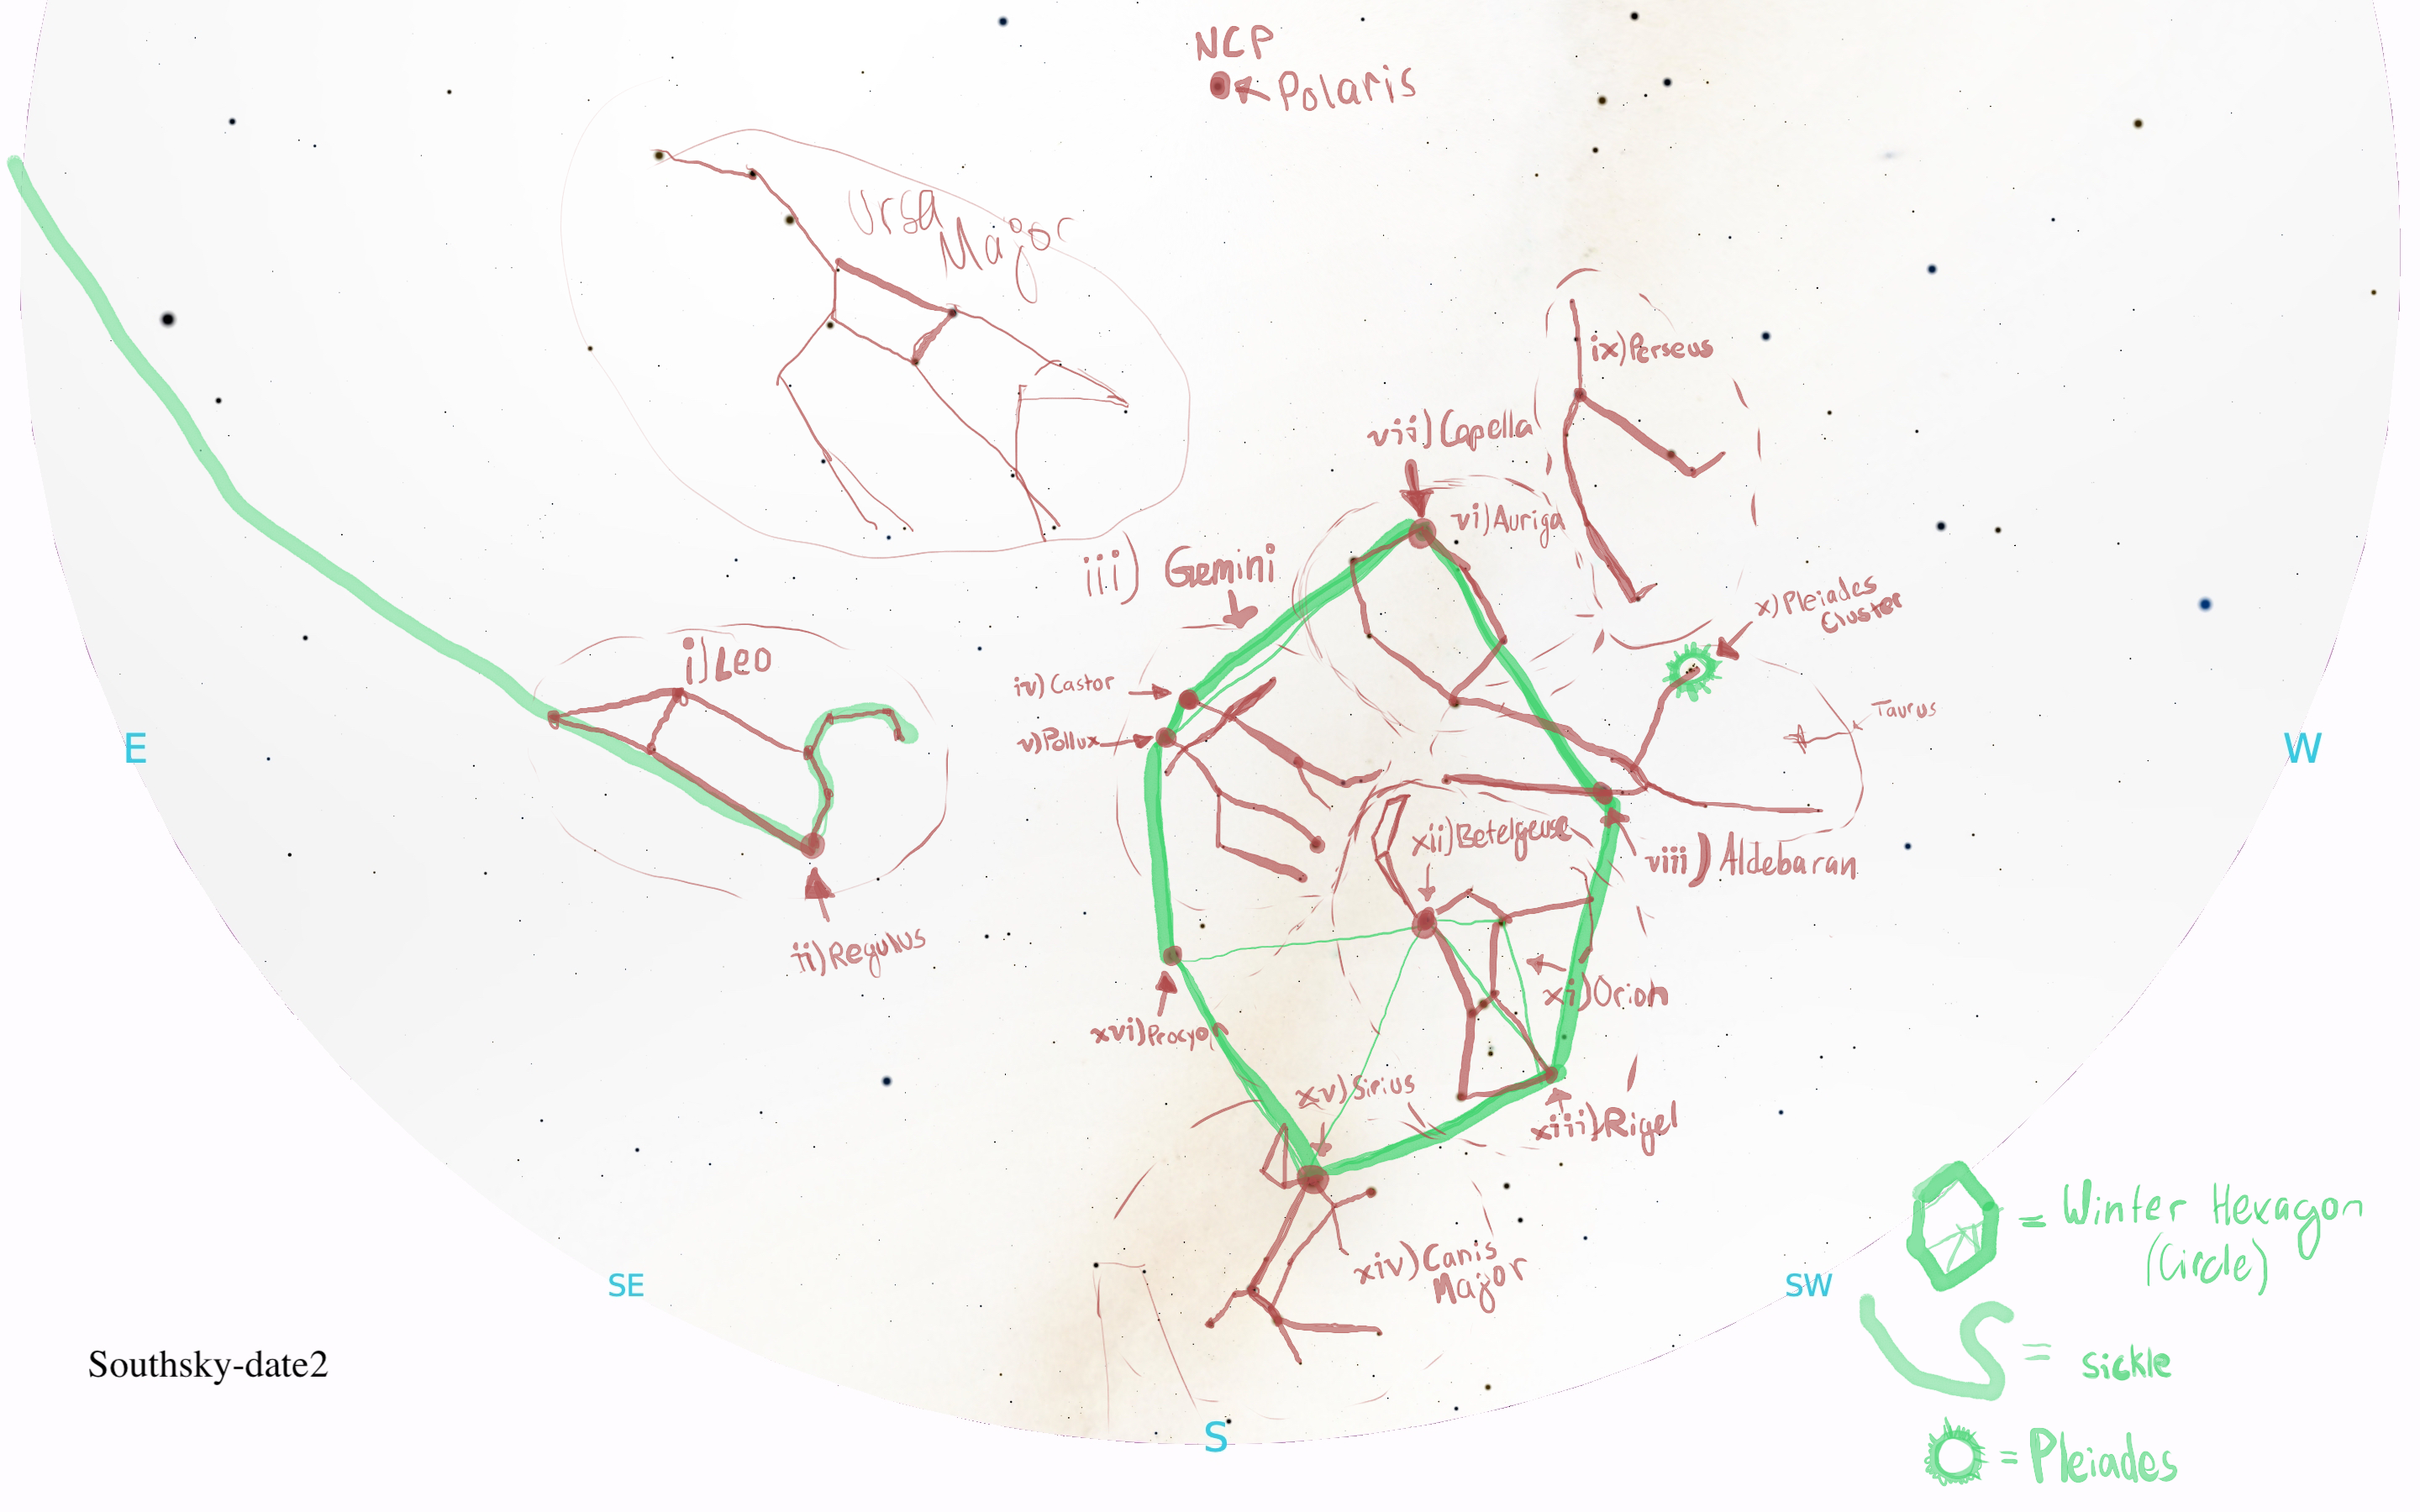 NCP
Polaris
Ursa
Major
ix)Perseus
vii)Capella
vi)Auriga
iii) Gemini
x)Pleiades
Cluster
i)Leo
iv) Castor
v)Pollux
Taurus
E
W
xii)Betelgeuse
viii) Aldebaran
ii)Regulus
xi)Orion
xvi)Procyon
xv)Sirius
xiii)Rigel
xiv)Canis
Major
SE
SW
= Winter Hexagon
(Circle)
= sickle
Southsky-date2
S
= Pleiades